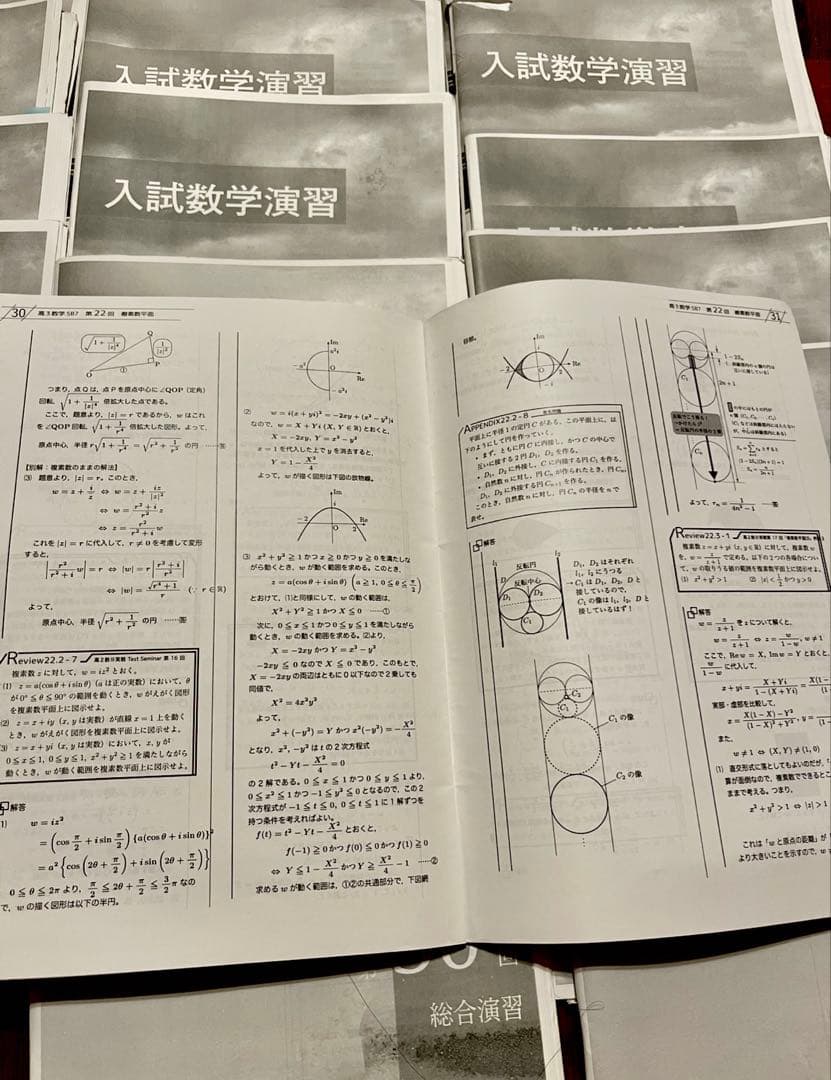 入試数学演習
入試数学演習
入試数学演習
30 高3数学SB7 第22回 複素数平面
Q
P
O
つまり，点Qは，点Pを原点中心に∠QOP（定角）
回転，√(1+1/|z|⁴) 倍拡大した点である。
ここで，題意より，|z|=rであるから，wはこれ
を∠QOP回転，√(1+1/r⁴) 倍拡大した図形。よって，
原点中心，半径 r√(1+1/r⁴) = √(r²+1/r²) の円 ……答
【別解：複素数のままの解法】
(3) 題意より，|z|=r。このとき，
w=z+i/z̄ ⇔ w=z+iz/|z|²
⇔ w=(r²+i)/r² z
⇔ z=r²/(r²+i) w
これを|z|=rに代入して，r≠0を考慮して変形
すると，
|r²/(r²+i) w|=r ⇔ |w|=r|(r²+i)/r²|
⇔ |w|=√(r⁴+1)/r (∵ r∈ℝ)
よって，
原点中心，半径 √(r²+1/r²) の円 ……答
Review22.2-7 高2数III実戦 Test Seminar 第16回
複素数zに対して，w=iz²とおく。
(1) z=a(cosθ+i sinθ)（aは正の実数）において，θ
が0°≦θ≦90°の範囲を動くとき，wがえがく図形
を複素数平面上に図示せよ。
(2) z=x+iy（x, yは実数）が直線x=1上を動く
とき，wがえがく図形を複素数平面上に図示せよ。
(3) z=x+yi（x, yは実数）において，x, yが
0≦x≦1，0≦y≦1，x²+y²≧1を満たしながら
動くとき，wが動く範囲を複素数平面上に図示せよ。
解答
(1) w=iz²
=(cos π/2+i sin π/2){a(cosθ+i sinθ)}²
=a²{cos(2θ+π/2)+i sin(2θ+π/2)}
0≦θ≦2πより，π/2≦2θ+π/2≦3/2πなの
で，wの描く図形は以下の半円。
Im
a²i
-a²
O
Re
-a²i
(2) w=i(x+yi)²=-2xy+(x²-y²)i
なので，w=X+Yi (X, Y∈ℝ)とおくと，
X=-2xy, Y=x²-y²
x=1を代入した上でyを消去すると，
Y=1-X²/4
よって，wが描く図形は下図の放物線。
Im
-2
O
2
Re
(3) x²+y²≧1かつx≧0かつy≧0を満たしな
がら動くとき，wが動く範囲を求める。このとき，
z=a(cosθ+i sinθ) (a≧1, 0≦θ≦π/2)
とおけて，(1)と同様にして，wの動く範囲は，
X²+Y²≧1かつX≦0 ……①
次に，0≦x≦1かつ0≦y≦1を満たしながら
動くとき，wが動く範囲を求める。(2)より，
X=-2xyかつY=x²-y²
-2xy≦0なのでX≦0であり，このもとで，
X=-2xyの両辺はともに0以下なので2乗しても
同値で，
X²=4x²y²
よって，
x²+(-y²)=Yかつx²(-y²)=-X²/4
となり，x², -y²はtの2次方程式
t²-Yt-X²/4=0
の2解である。0≦x≦1かつ0≦y≦1より，
0≦x²≦1かつ-1≦-y²≦0となるので，この2
次方程式が-1≦t≦0, 0≦t≦1に1解ずつを
持つ条件を考えればよい。
f(t)=t²-Yt-X²/4とおくと，
f(-1)≧0かつf(0)≦0かつf(1)≧0
⇔ Y≦1-X²/4かつY≧X²/4-1 ……②
求めるwが動く範囲は，①②の共通部分で，下図網
高3数学SB7 第22回 複素数平面 31
目部。
Im
-2
O
2
Re
APPENDIX22.2-8
平面上に半径1の定円Cがある。この平面上に，以
下のようにして円を作っていく。
・まず，ともに円Cに内接し，かつCの中心で
互いに接する2円D₁，D₂を作る。
・D₁，D₂に外接し，Cに内接する円C₁を作る。
・自然数nに対し，円Cₙが作られたとき，円Cₙ，
D₁，D₂に外接する円Cₙ₊₁を作る。
このとき，自然数nに対し，円Cₙの半径をnで
表せ。
解答
l₁
l₂
反転円
D
反転中心
D₁
D₂
C₁
D₁，D₂はそれぞれ
l₁，l₂にうつる
→C₁はD₁，D₂，Dと
接しているので，
C₁の像はl₁，l₂，Dと
接しているはず！
C₁の像
C₂の像
C₁
2n+1
よって，rₙ=1/(4n²-1) ……答
Review22.3-1
複素数z=x+yi (x, y∈ℝ)に対して，複素数w
を，w=z/(z+1)で定める。以下の2つの各場合につい
て，wの取りうる値の範囲を複素数平面上に図示せよ。
(1) x²+y²>1 (2) |x|<1/2かつy>0
解答
w=z/(z+1)をzについて解くと，
w=z/(z+1) ⇔ z=w/(1-w), w≠1
ここで，Re w=X, Im w=Yとおくと，
w/(1-w)に代入して，
x+yi=(X+Yi)/(1-(X+Yi))
実部・虚部を比較して，
x=(X(1-X)-Y²)/((1-X)²+Y²), y=
また，
w≠1 ⇔ (X, Y)≠(1, 0)
(1) 直交形式に落としてもよいのだが，
算が面倒なので，複素数でできるところ
ままで考える。つまり，
x²+y²>1 ⇔ |z|>1
これは「wと原点の距離」が
より大きいことを示すので，w
総合演習